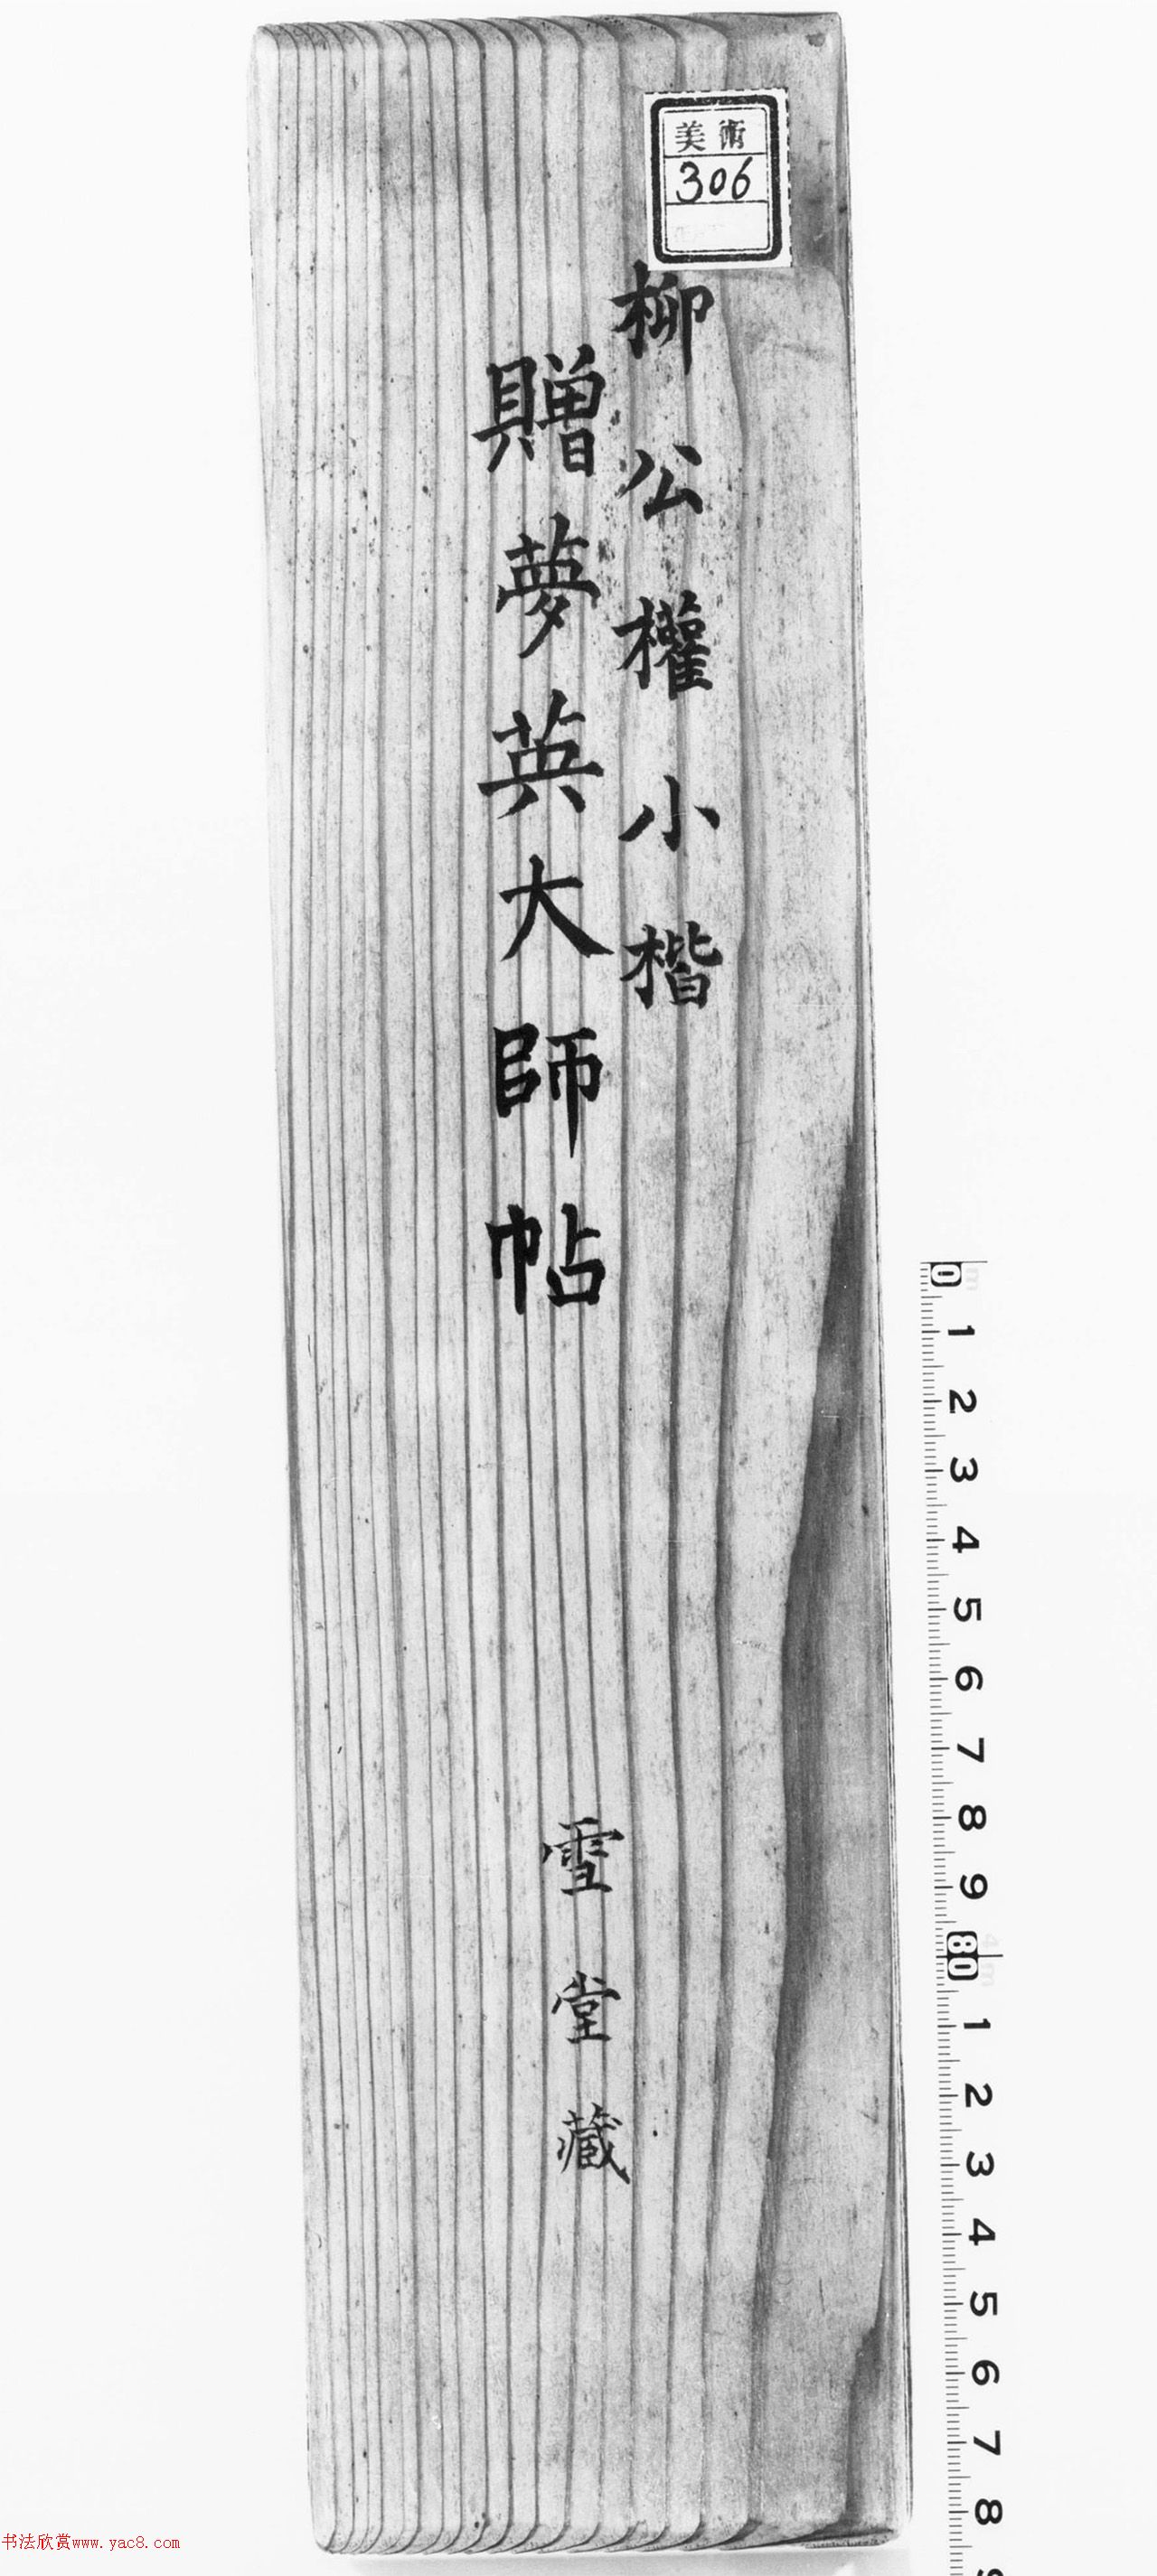 美術
306
柳公權小楷
贈夢英大師帖
雪堂藏
0
1
2
3
4
5
6
7
8
9
80
1
2
3
4
5
6
7
8
书法欣赏www.yac8.com